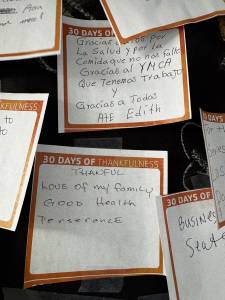 30 DAYS OF
Gracias por
La Salud y Por la
Comida que no nos falte
Gracias al YMCA
Que Tenemos Trabajo
y
Gracias a Todos
Att Edith
KFULNESS
to
to
30 DAYS OF THANKFULNESS
THANFUL
LOVE of my family
GOOD Health
Perserence
30 DAYS
30 DAYS OF
Business